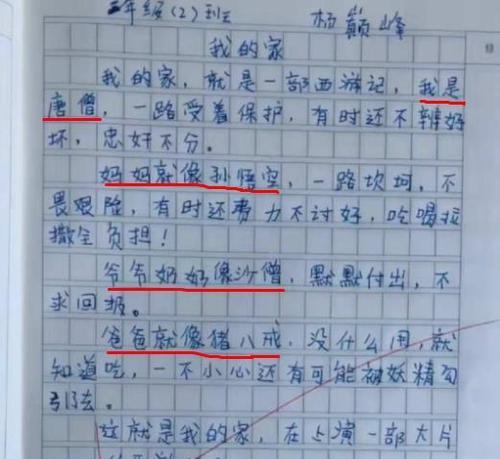 三年级(2)班 杨巅峰
我的家
我的家，就是一部西游记，我是
唐僧，一路受着保护，有时还不辨好
坏，忠奸不分。
妈妈就像孙悟空，一路坎坷，不
畏艰险，有时还费力不讨好，吃喝拉
撒全负担！
爷爷奶奶像沙僧，默默付出，不
求回报。
爸爸就像猪八戒，没什么用，就
知道吃，一不小心还有可能被妖精勾
引去。
这就是我的家，在上演一部大片